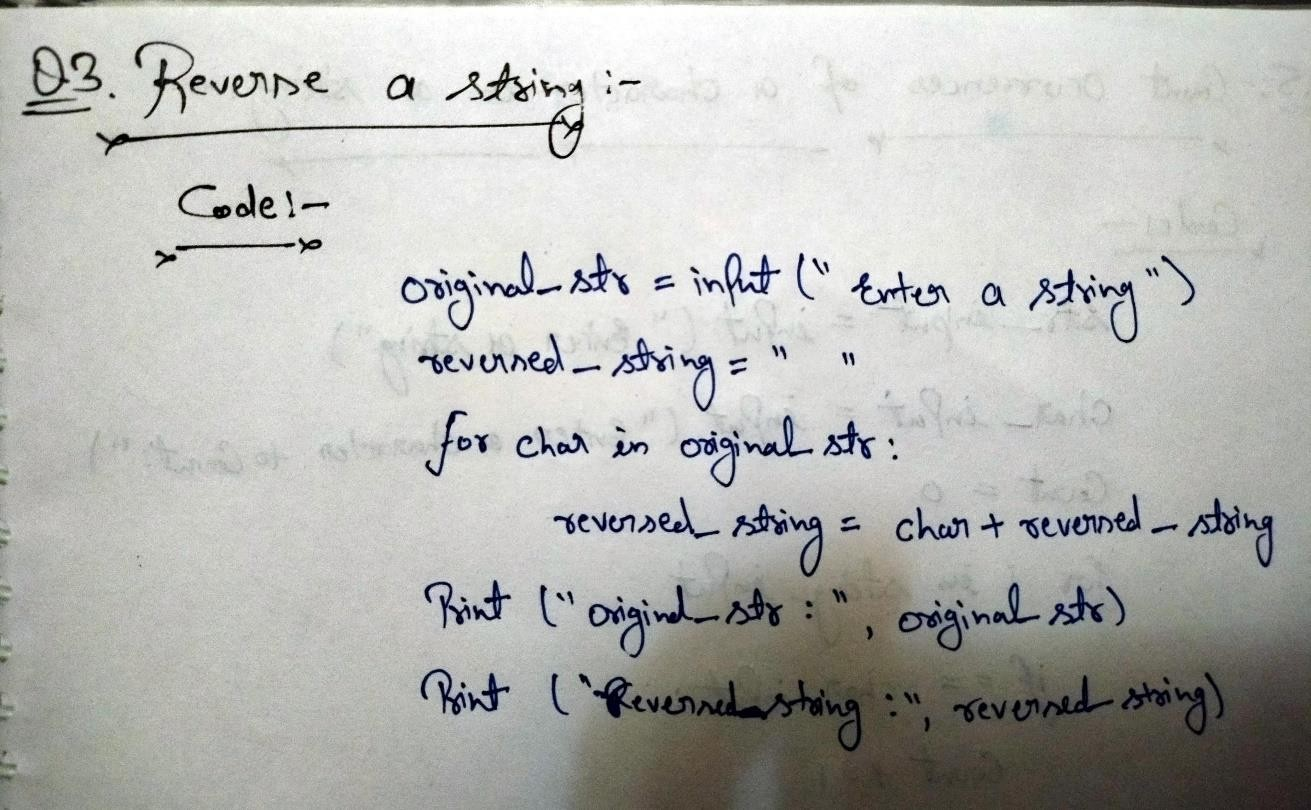 Q3. Reverse a string :-
Code :-
original_str = input (" Enter a string ")
reversed_string = "   "
for char in original_str :
reversed_string = char + reversed_string
Print (" original_str : ", original_str)
Print (" Reversed_string : ", reversed_string)